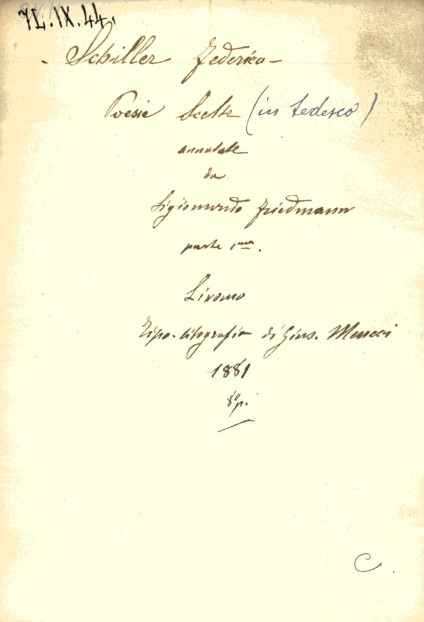 7L.IX.44.
Schiller Federico -
Poesie Scelte (in tedesco)
annotate
da
Sigismondo Friedmann
parte 1ma.
Livorno
Tipo-litografia di Gius. Meucci
1881
8º p.
C.